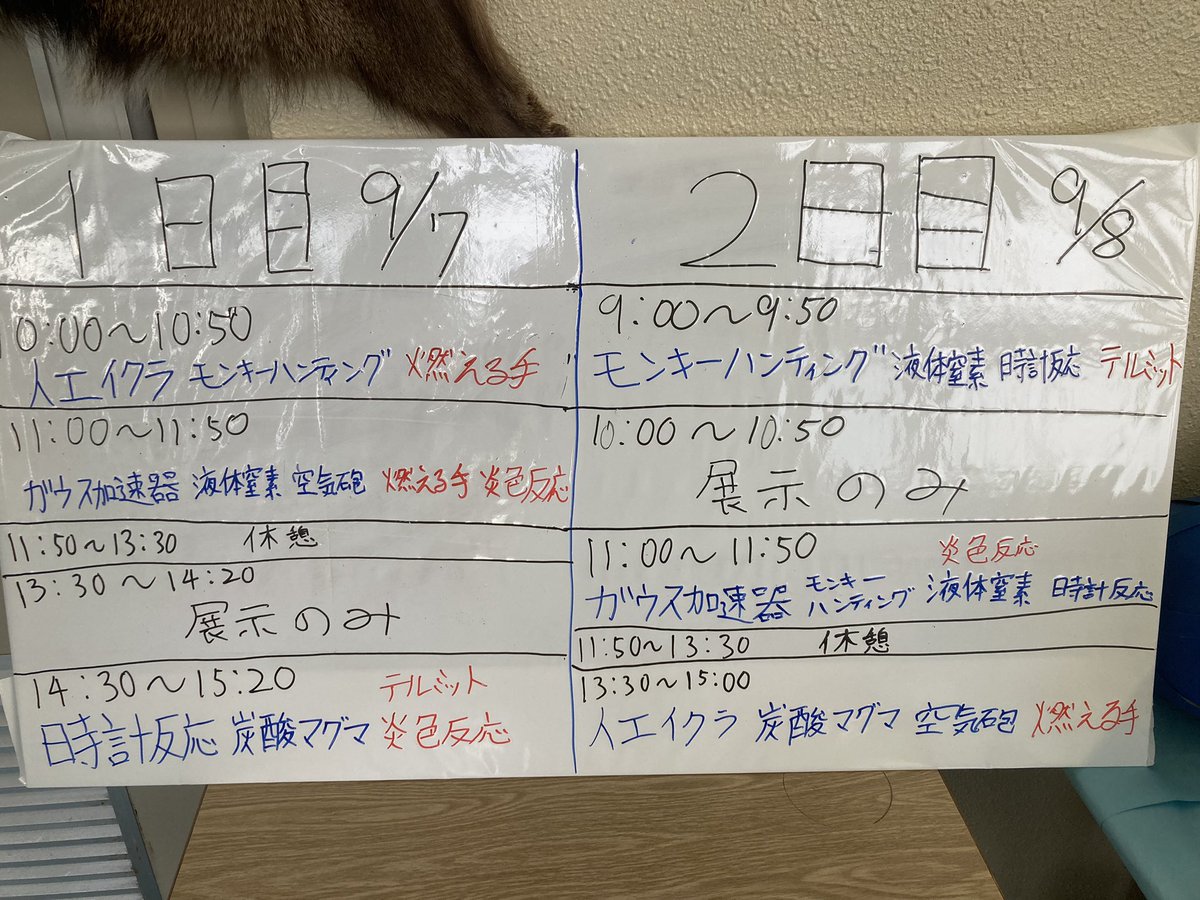 1日目 9/7
10:00〜10:50
人工イクラ モンキーハンティング 燃える手
11:00〜11:50
ガウス加速器 液体窒素 空気砲 燃える手 炎色反応
11:50〜13:30 休憩
13:30〜14:20
展示のみ
14:30〜15:20 テルミット
時計反応 炭酸マグマ 炎色反応
2日目 9/8
9:00〜9:50
モンキーハンティング 液体窒素 時計反応 テルミット
10:00〜10:50
展示のみ
11:00〜11:50 炎色反応
ガウス加速器 モンキーハンティング 液体窒素 時計反応
11:50〜13:30 休憩
13:30〜15:00
人工イクラ 炭酸マグマ 空気砲 燃える手